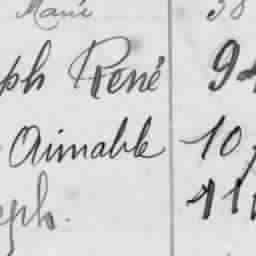 Marie 38
ph René 9
Aimable 10
eph. 11